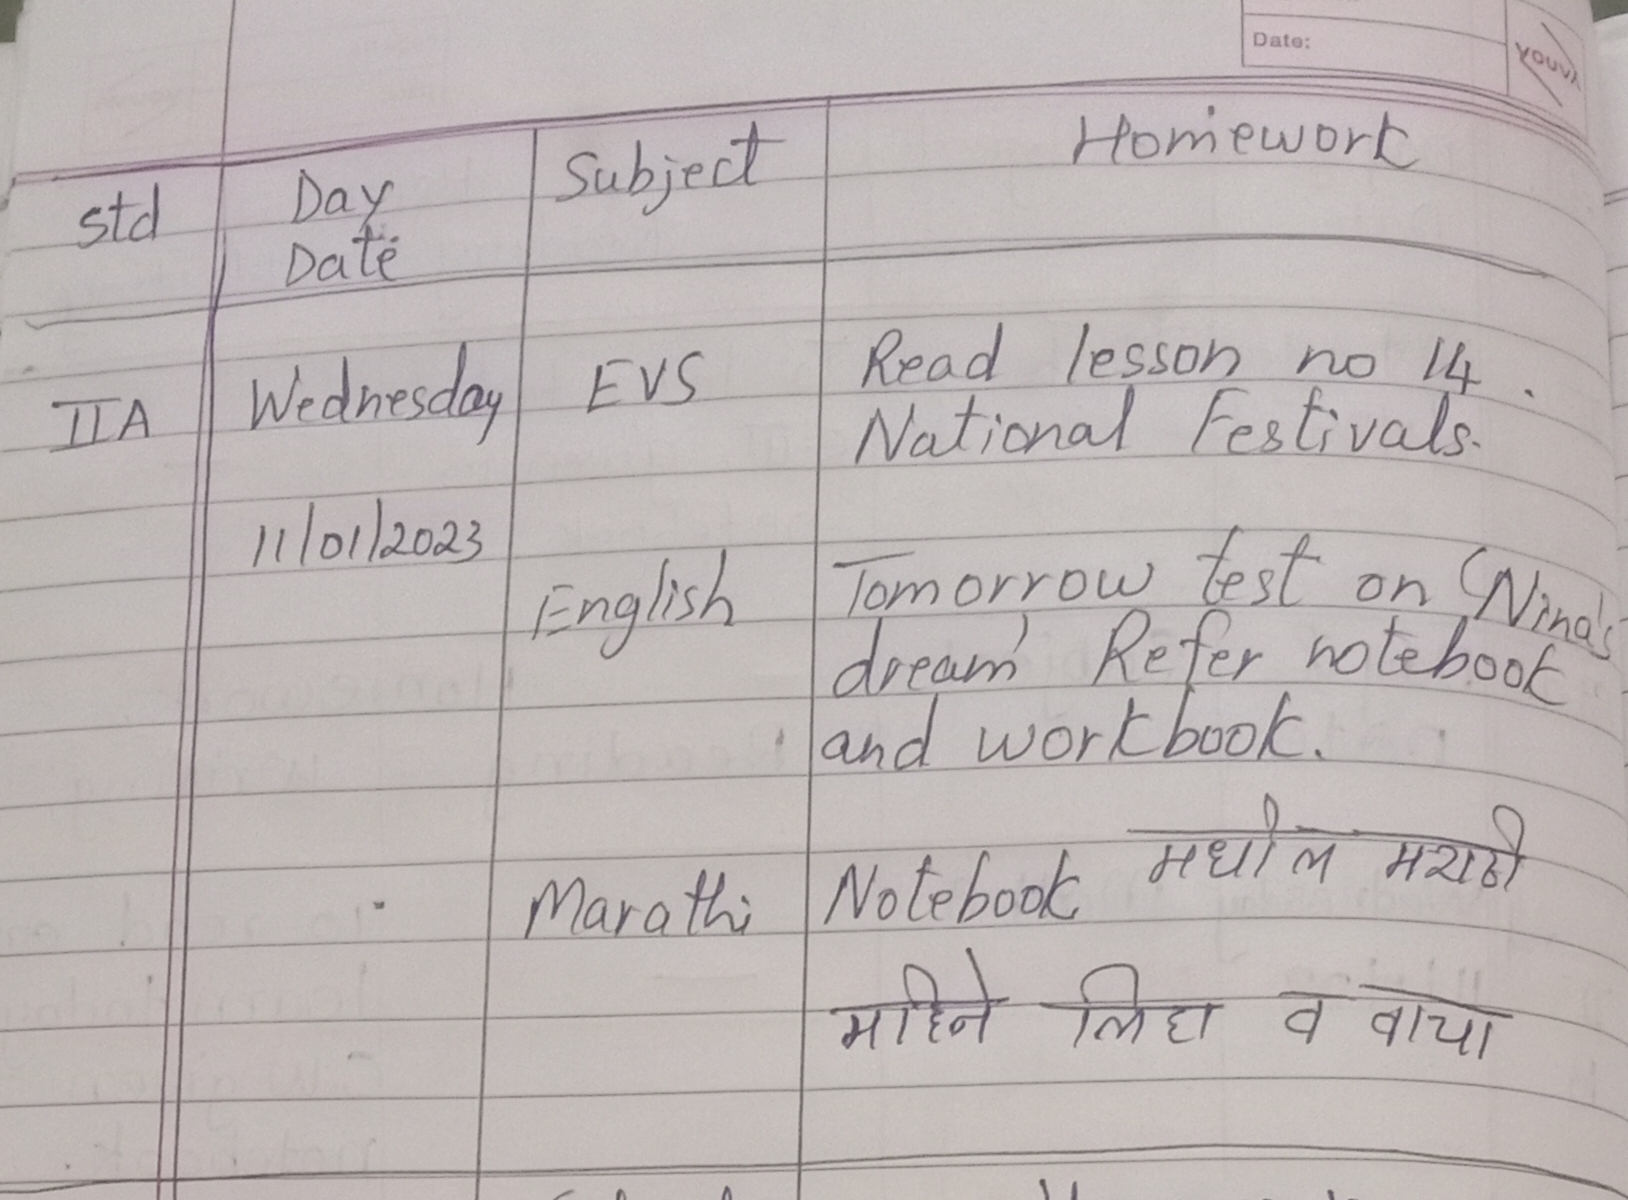 Date:
YOUVA
Std
Day
Date
Subject
Homework
IIA
Wednesday
11/01/2023
EVS
Read lesson no 14.
National Festivals.
English
Tomorrow test on 'Nina's
dream' Refer notebook
and workbook.
Marathi
Notebook मधील मराठी
महिने लिहा व वाचा